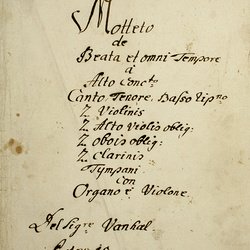 Motteto
de
Beata et omni Tempore
à
Alto Conc:to
Canto, Tenore, Basso Rip:no
2 Violinis
2 Alto Violis oblig:
2 obois oblig:
2 Clarinis
Tympani
con
Organo e Violone.
Del Sigre Vanhal